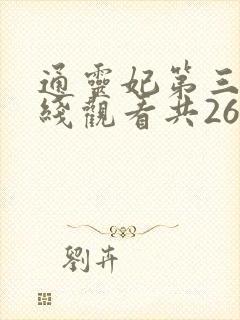 通靈妃第三
綫觀看共26
劉卉